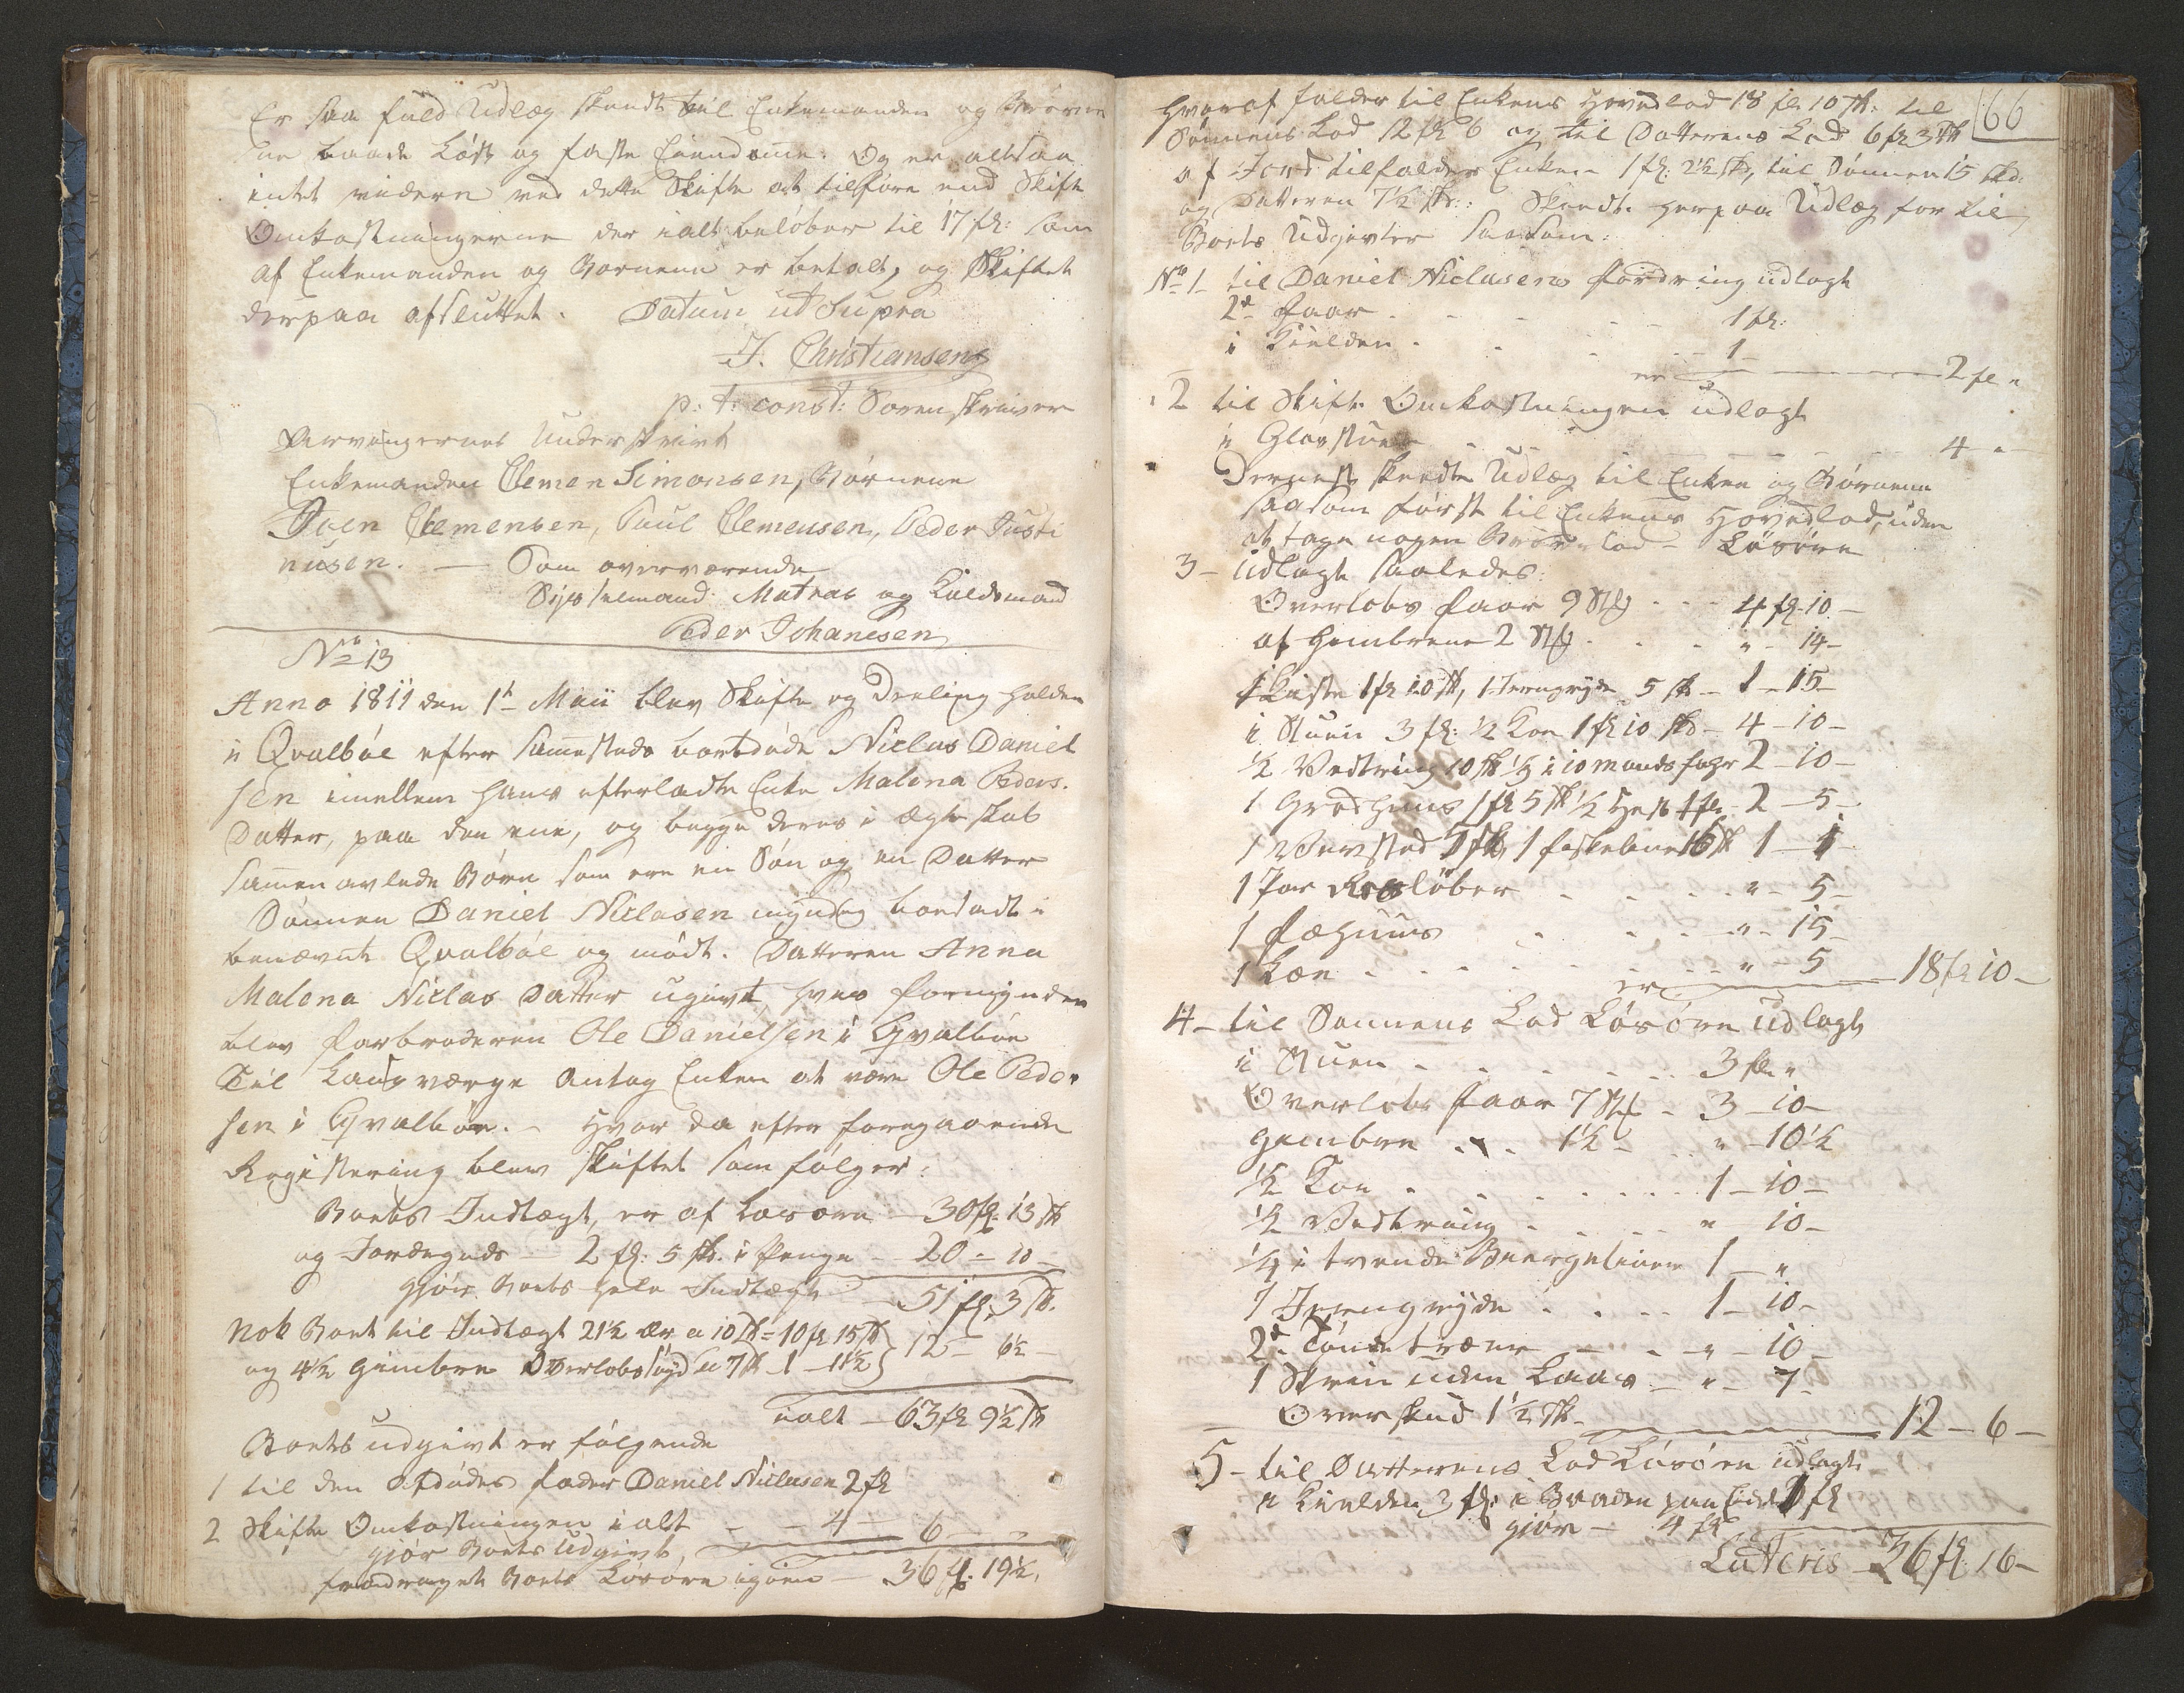 Er saa fuld Udlæg skeedt til Enkemanden og Børnene
saa baade Løst og faste Eiendomme. Og er altsaa
intet videre ved dette Skifte at tilføre end Skifte
Omkostningerne der ialt beløber til 17 fl: som
af Enkemanden og Børnene er betalt, og Skiftet
derpaa afsluttet. Datum ut Supra
J. Christiansen
p: t: const: Sorenskriver
Arvingernes Underskrivt
Enkemanden Clemen Simonsen, Børnene
Joen Clemensen, Paul Clemensen, Peder Justi
nusen. — Som overværende
Sysselmand: Matras og Kaldsmand
Peder Johanesen
No 13
Anno 1811 den 1t Maii blev Skifte og Deeling holden
i Qvalbøe efter sammesteds bortdøde Niclas Daniel
sen imellem hans efterladte Enke Malena Peders.
Datter, paa den ene, og begge deres i Ægteskab
sammen avlede Børn som ere en Søn og en Datter
Sønnen Daniel Niclasen myndig boesadt i
benævnte Qvalbøe og mødt. Datteren Anna
Malena Niclas Datter ugivt, hves Formynder
blev Farbroderen Ole Danielsen i Qvalbøe
Til Laugværge Antog Enken at være Ole Peder
sen i Qvalbøe. - Hvor da efter foregaaende
Registering blev Skiftet som følger:
Boets Indtægt, er af Løsøre — 30 fl. 13 sk
og Jordegods — 2 fl: 5 sk. i Penge — 20 - 10 -
Gjør Boets hele Indtægt — 51 fl. 3 sk.
Nok Boet til Indtægt 21½ Ær a 10 sk = 10 fl 15 sk
og 4½ Gimbre Overlobs a 7 sk 1 - 11½ } 12 - 6½ -
ialt — 63 fl 9½ sk
Boets udgivt er følgende
1 til den Afdødes Fader Daniel Niclasen 2 fl
2 Skifte Omkostningen ialt - - 4 -
gjør Boets Udgivt 6 - -
fradraget Boets Løsøre igien — 36 fl. 19½.
66
Hvoraf falder til Enkens Hovedlod 18 fl: 10 sk: til
Sønnens Lod 12 fl 6 og til Datterens Lod 6 fl 3 sk
af Jord tilfalder Enken 1 fl: 2½ sk, til Sønnen 15 sk:
og Datteren 7½ sk: Skeedte herpaa Udlæg for til
Boets Udgivter saasom:
No 1 til Daniel Niclasens Fordring udlagt
2de Faar - - - 1 fl:
i Kielden - - - 1 -
er — 2 fl "
2 til Skifte Omkostningen udlagt
i Glasstuen - - - 4 - "
Dernest skeedte Udlæg til Enken og Børnene
saasom først til Enkens Hovedlod, uden
at tage nogen Broderlod - Løsøre
3 - udlagt saaledes:
Overlobs Faar 9 Stk - - 4 fl. 10 -
af Gimbrene 2 Stk - - " - 14 -
1 Kiste 1 fl 10 sk, 1 Jerngryde 5 sk - 1 - 15 -
i Stuen 3 fl: ½ Koe 1 fl 10 sk - 4 - 10 -
½ Vedtring 10 sk ¼ i 10 mands far 2 - 10 -
1 Grødhuus 1 fl 5 sk ½ Hest 1 fl - 2 - 5 -
1 Vævstad 5 sk, 1 Fiskeline 16 sk 1 - 1
1 Par løber - - - " - 5 -
1 Fæhuus - - - " - 15 -
1 Kæe - - - " - 5
er — 18 fl 10 -
4 - til Sønnens Lod Løsøre udlagt
i Stuen - - - 3 fl. "
Overlobs Faar 7 Stk - 3 - 10 -
Gimbre - - 1½ - " - 10½
½ Koe - - - 1 - 10 -
½ Vedtring - - - " 10 -
¼ i tvende Biergeliner 1 - "
1 Jerngryde - - - 1 - 10 -
2de Tønder - - " - 10 -
1 Skrin uden Laas - " - 7 -
Overskud 1½ sk -
— 12 - 6 -
5 - til Datterens Lod Løsøre udlagt
i Kielden 3 fl: i Boden paa 1 fl
gjør — 4 fl
Lateris 36 fl. 16 -